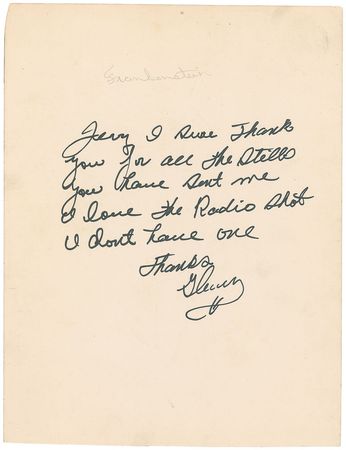 Frankenstein
Jerry I sure Thank
you for all the Stills
you have sent me
I love the Radio shot
I dont have one
Thanks
Glenn